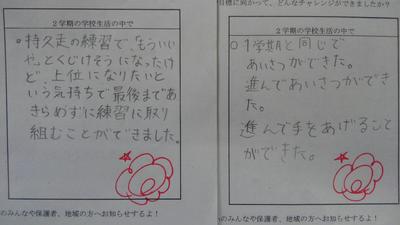 2学期の学校生活の中で
○持久走の練習で、「もういい
や」とくじけそうになったけ
ど、上位になりたいと
いう気持ちで最後まであ
きらめずに練習に取り
組むことができました。
のみんなや保護者、地域の方へお知らせするよ!
目標に向かって、どんなチャレンジができましたか?
2学期の学校生活の中で
○1学期と同じで
あいさつができた。
進んであいさつができ
た。
進んで手をあげること
ができた。
のみんなや保護者、地域の方へお知らせするよ!